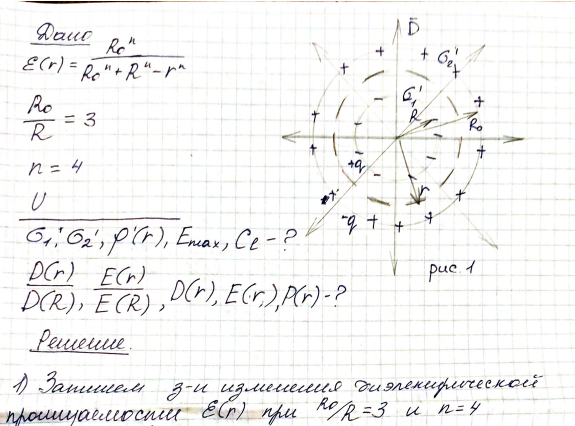 Дано
ε(r) = R₀ⁿ / (R₀ⁿ + Rⁿ - rⁿ)
R₀/R = 3
n = 4
U
σ₁', σ₂', ρ'(r), Emax, Cе - ?
D(r)/D(R), E(r)/E(R), D(r), E(r), P(r) - ?
D̄
σ₂'
σ₁'
R
R₀
+q
r
-q
рис. 1
Решение.
1) Запишем з-н изменения диэлектрической
проницаемости ε(r) при R₀/R = 3 и n = 4